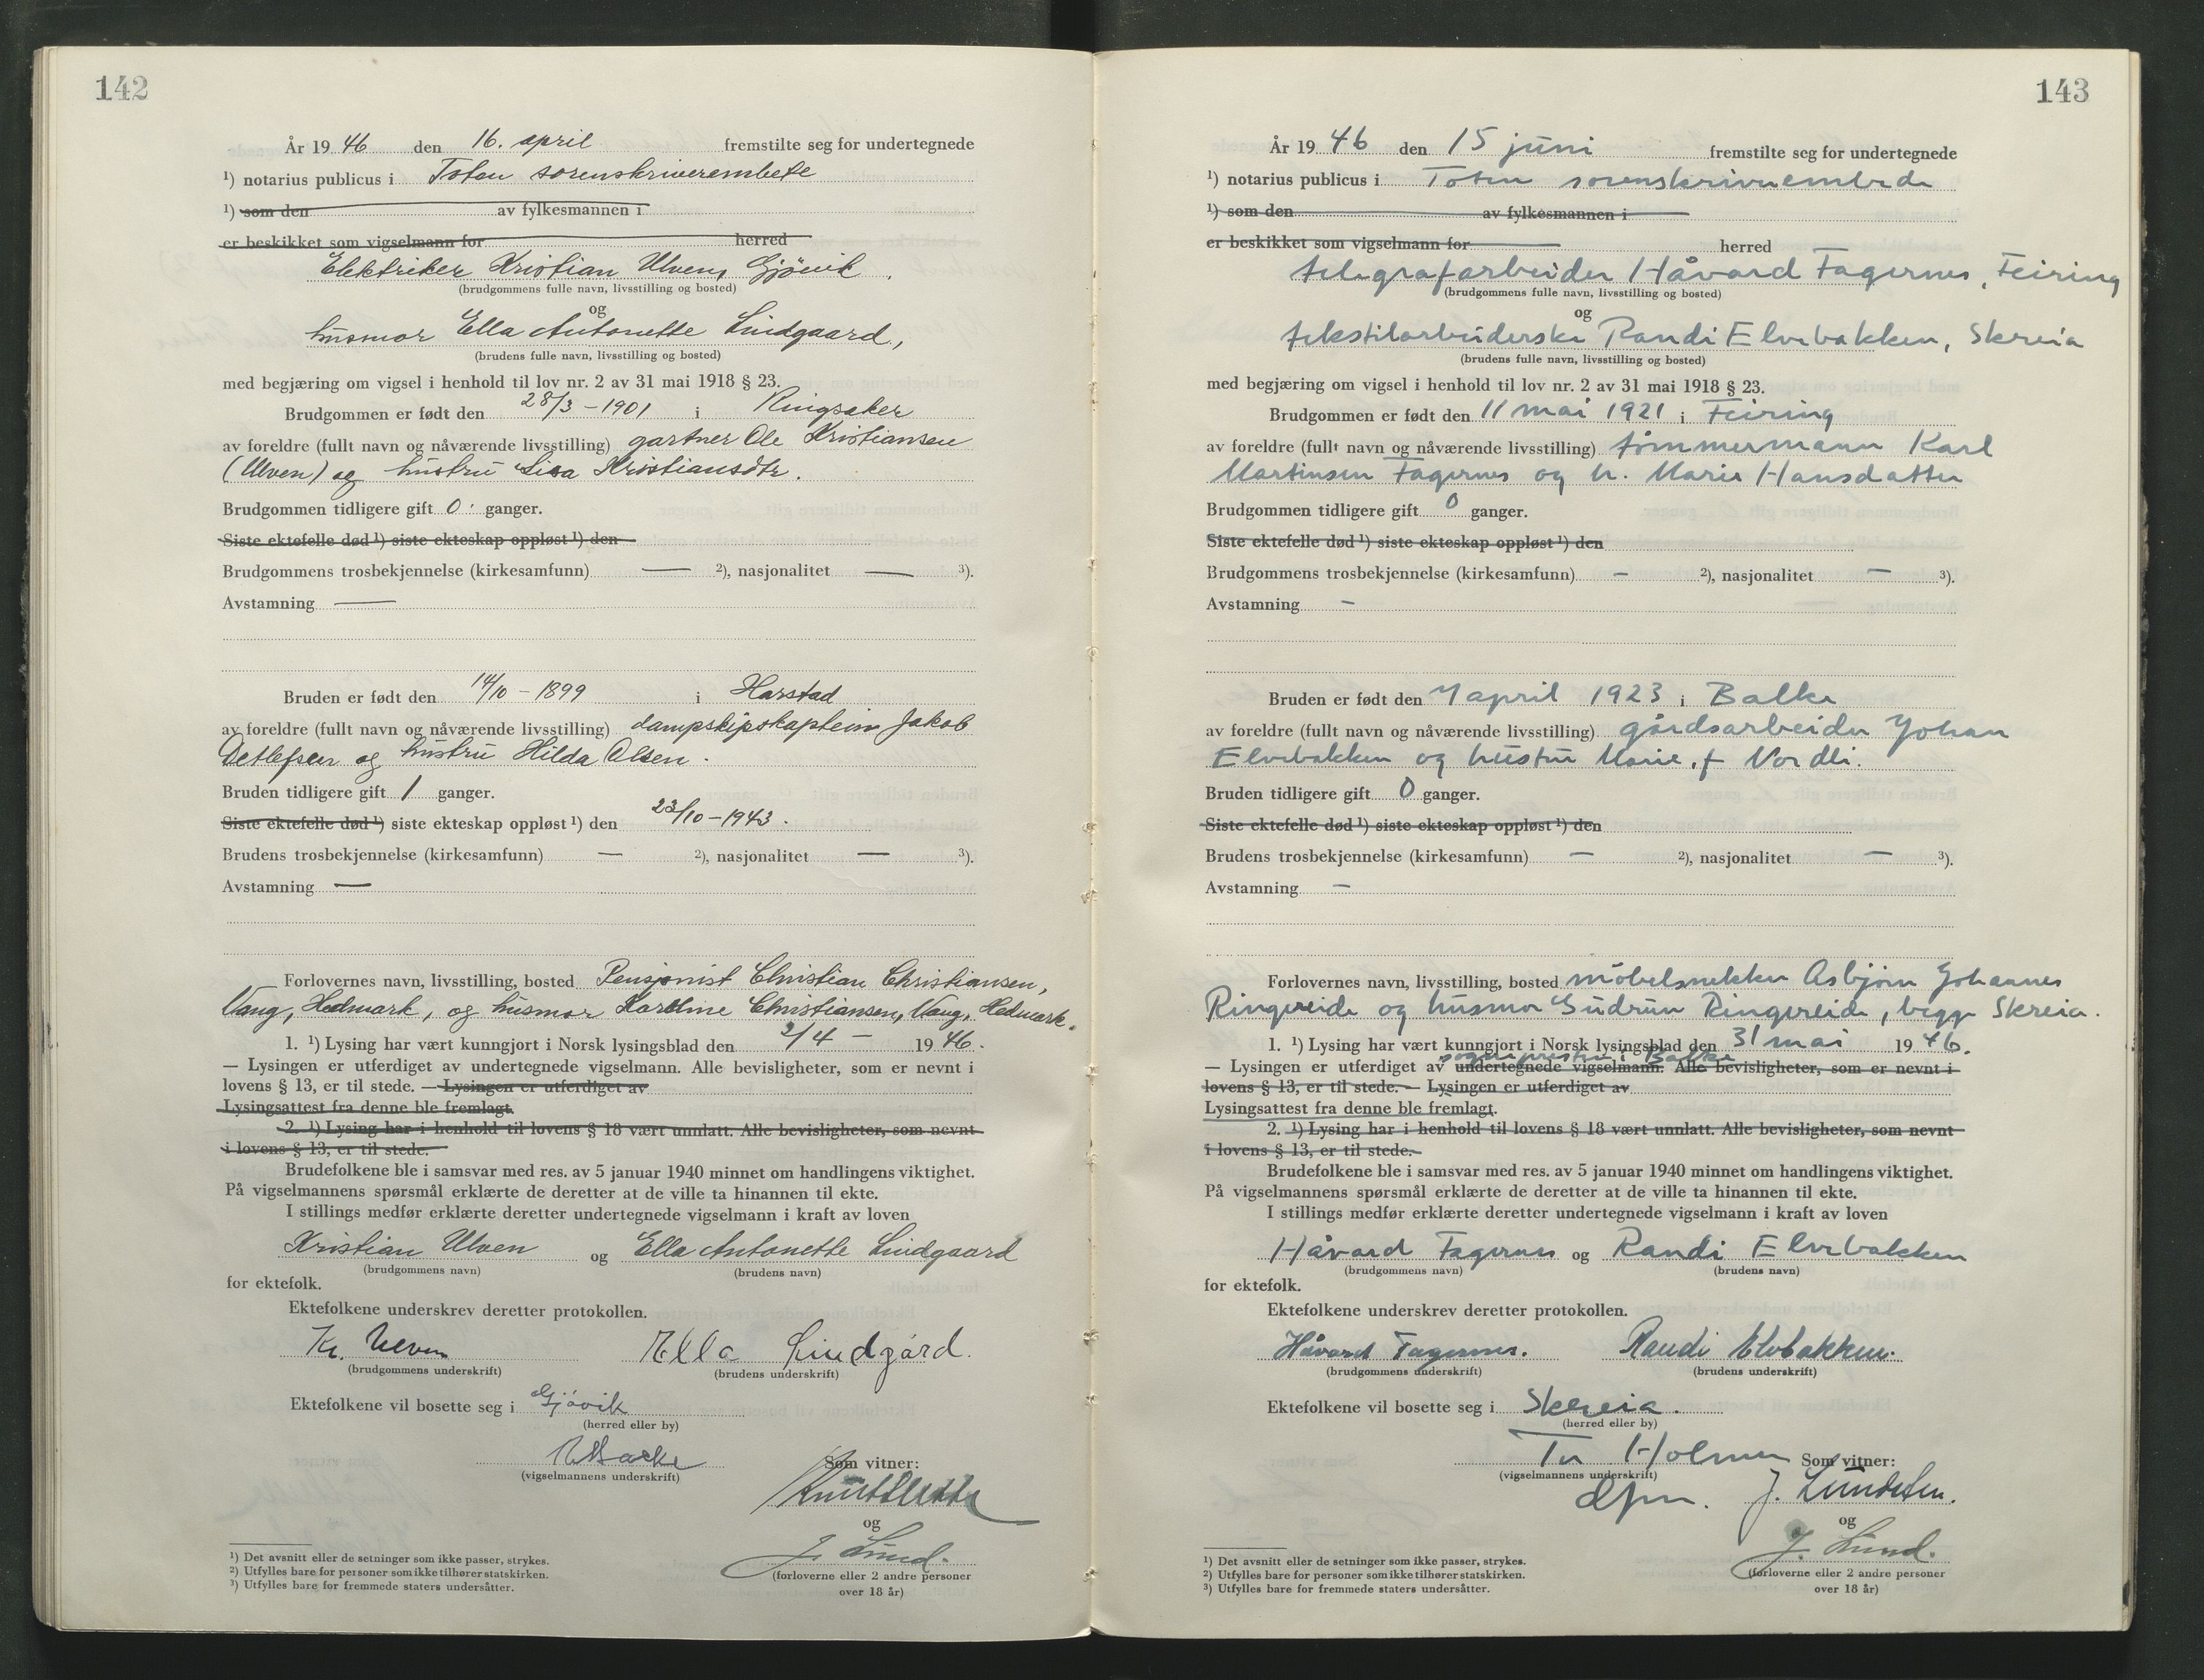 142
År 19 46 den 16. april fremstilte seg for undertegnede
¹) notarius publicus i Toten sorenskriverembete
¹) som den av fylkesmannen i
er beskikket som vigselmann for herred
Elektriker Kristian Ulven, Gjövik.
(brudgommens fulle navn, livsstilling og bosted)
og
husmor Ella Antonette Lindgaard,
(brudens fulle navn, livsstilling og bosted)
med begjæring om vigsel i henhold til lov nr. 2 av 31 mai 1918 § 23.
Brudgommen er født den 28/3 – 1901 i Ringsaker
av foreldre (fullt navn og nåværende livsstilling) gartner Ole Kristiansen
(Ulven) og hustru Lisa Kristiansdtr.
Brudgommen tidligere gift 0 ganger.
Siste ektefelle død ¹) siste ekteskap oppløst ¹) den
Brudgommens trosbekjennelse (kirkesamfunn) — ²), nasjonalitet — ³).
Avstamning —
Bruden er født den 14/10 – 1899 i Harstad
av foreldre (fullt navn og nåværende livsstilling) dampskipskaptein Jakob
Detlefsen og hustru Hilda Olsen.
Bruden tidligere gift 1 ganger.
Siste ektefelle død ¹) siste ekteskap oppløst ¹) den 23/10 – 1943.
Brudens trosbekjennelse (kirkesamfunn) — ²), nasjonalitet — ³).
Avstamning —
Forlovernes navn, livsstilling, bosted Pensjonist Christian Christiansen,
Vang, Hedmark, og husmor Karoline Christiansen, Vang, Hedmark.
1. ¹) Lysing har vært kunngjort i Norsk lysingsblad den 2/4 – 19 46.
— Lysingen er utferdiget av undertegnede vigselmann. Alle bevisligheter, som er nevnt i
lovens § 13, er til stede. — Lysingen er utferdiget av
Lysingsattest fra denne ble fremlagt.
2. ¹) Lysing har i henhold til lovens § 18 vært unnlatt. Alle bevisligheter, som nevnt
i lovens § 13, er til stede.
Brudefolkene ble i samsvar med res. av 5 januar 1940 minnet om handlingens viktighet.
På vigselmannens spørsmål erklærte de deretter at de ville ta hinannen til ekte.
I stillings medfør erklærte deretter undertegnede vigselmann i kraft av loven
Kristian Ulven og Ella Antonette Lindgaard
(brudgommens navn) (brudens navn)
for ektefolk.
Ektefolkene underskrev deretter protokollen.
Kr. Ulven Ella Lindgård.
(brudgommens underskrift) (brudens underskrift)
Ektefolkene vil bosette seg i Gjøvik
(herred eller by)
(vigselmannens underskrift) Som vitner:
og
J. Lund.
(forloverne eller 2 andre personer
over 18 år)
¹) Det avsnitt eller de setninger som ikke passer, strykes.
²) Utfylles bare for personer som ikke tilhører statskirken.
³) Utfylles bare for fremmede staters undersåtter.
143
År 19 46 den 15 juni fremstilte seg for undertegnede
¹) notarius publicus i Toten sorenskriverembede
¹) som den av fylkesmannen i
er beskikket som vigselmann for herred
telegrafarbeider Håvard Fagernes, Feiring
(brudgommens fulle navn, livsstilling og bosted)
og
tekstilarbeiderske Randi Elvebakken, Skreia
(brudens fulle navn, livsstilling og bosted)
med begjæring om vigsel i henhold til lov nr. 2 av 31 mai 1918 § 23.
Brudgommen er født den 11 mai 1921 i Feiring
av foreldre (fullt navn og nåværende livsstilling) tømmermann Karl
Martinsen Fagernes og h. Marie Hansdatter
Brudgommen tidligere gift 0 ganger.
Siste ektefelle død ¹) siste ekteskap oppløst ¹) den
Brudgommens trosbekjennelse (kirkesamfunn) – ²), nasjonalitet – ³).
Avstamning –
Bruden er født den 7 april 1923 i Balke
av foreldre (fullt navn og nåværende livsstilling) gårdsarbeider Johan
Elvebakken og hustru Marie, f Nordli.
Bruden tidligere gift 0 ganger.
Siste ektefelle død ¹) siste ekteskap oppløst ¹) den
Brudens trosbekjennelse (kirkesamfunn) – ²), nasjonalitet – ³).
Avstamning –
Forlovernes navn, livsstilling, bosted møbelsnekker Asbjørn Johannes
Ringereide og husmor Gudrun Ringereide, begge Skreia.
1. ¹) Lysing har vært kunngjort i Norsk lysingsblad den 31 mai 19 46.
sognepresten i Balke
— Lysingen er utferdiget av undertegnede vigselmann. Alle bevisligheter, som er nevnt i
lovens § 13, er til stede. — Lysingen er utferdiget av
Lysingsattest fra denne ble fremlagt.
2. ¹) Lysing har i henhold til lovens § 18 vært unnlatt. Alle bevisligheter, som nevnt
i lovens § 13, er til stede.
Brudefolkene ble i samsvar med res. av 5 januar 1940 minnet om handlingens viktighet.
På vigselmannens spørsmål erklærte de deretter at de ville ta hinannen til ekte.
I stillings medfør erklærte deretter undertegnede vigselmann i kraft av loven
Håvard Fagernes og Randi Elvebakken
(brudgommens navn) (brudens navn)
for ektefolk.
Ektefolkene underskrev deretter protokollen.
Håvard Fagernes. Randi Elvbakken.
(brudgommens underskrift) (brudens underskrift)
Ektefolkene vil bosette seg i Skreia.
(herred eller by)
Holmen Som vitner:
(vigselmannens underskrift)
og
J. Lund.
(forloverne eller 2 andre personer
over 18 år)
¹) Det avsnitt eller de setninger som ikke passer, strykes.
²) Utfylles bare for personer som ikke tilhører statskirken.
³) Utfylles bare for fremmede staters undersåtter.